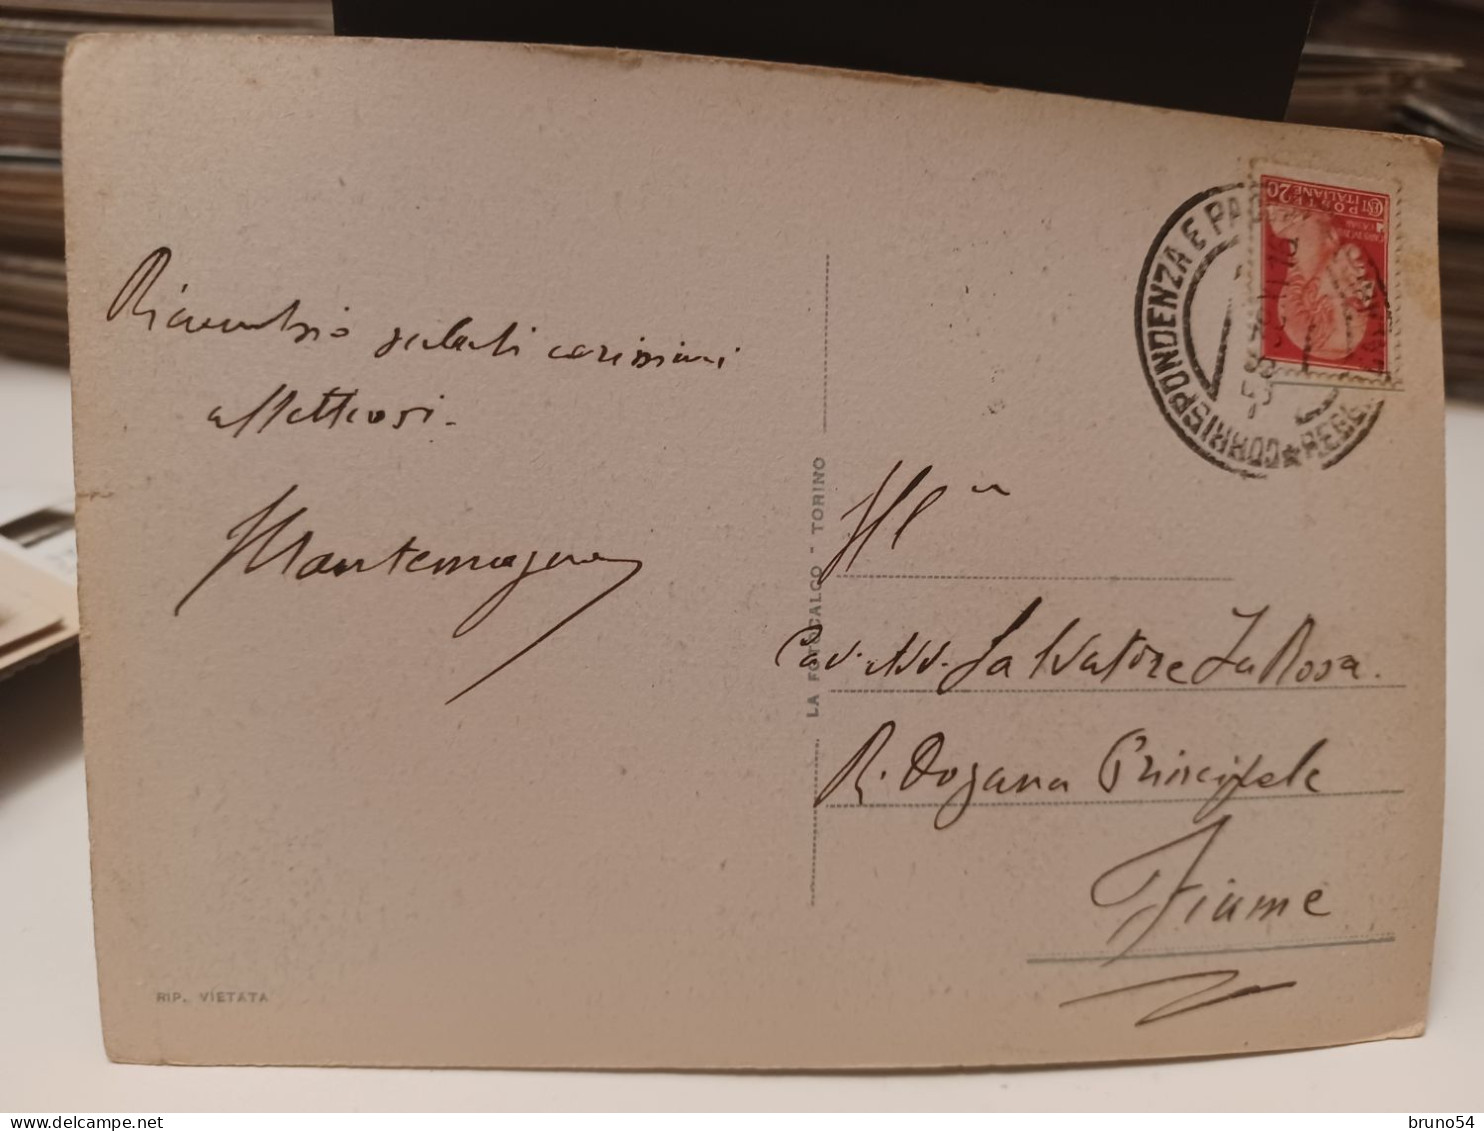 Ricambio saluti carissimi
affettuosi.
Mantemagno
LA FOTOCALCO - TORINO
RIP. VIETATA
POSTE ITALIANE
20
CORRISPONDENZA E PAC
REGG
Ill
Cav. Avv. Salvatore La Rosa.
R. Dogana Principale
Fiume
bruno54